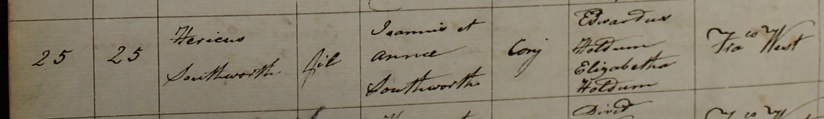 25
25
Hericus
Southworth
fil
Joannis et
Annæ
Southworth
Conj
Edwardus
Holdum
Elizabetha
Holdum
Via West
Divit